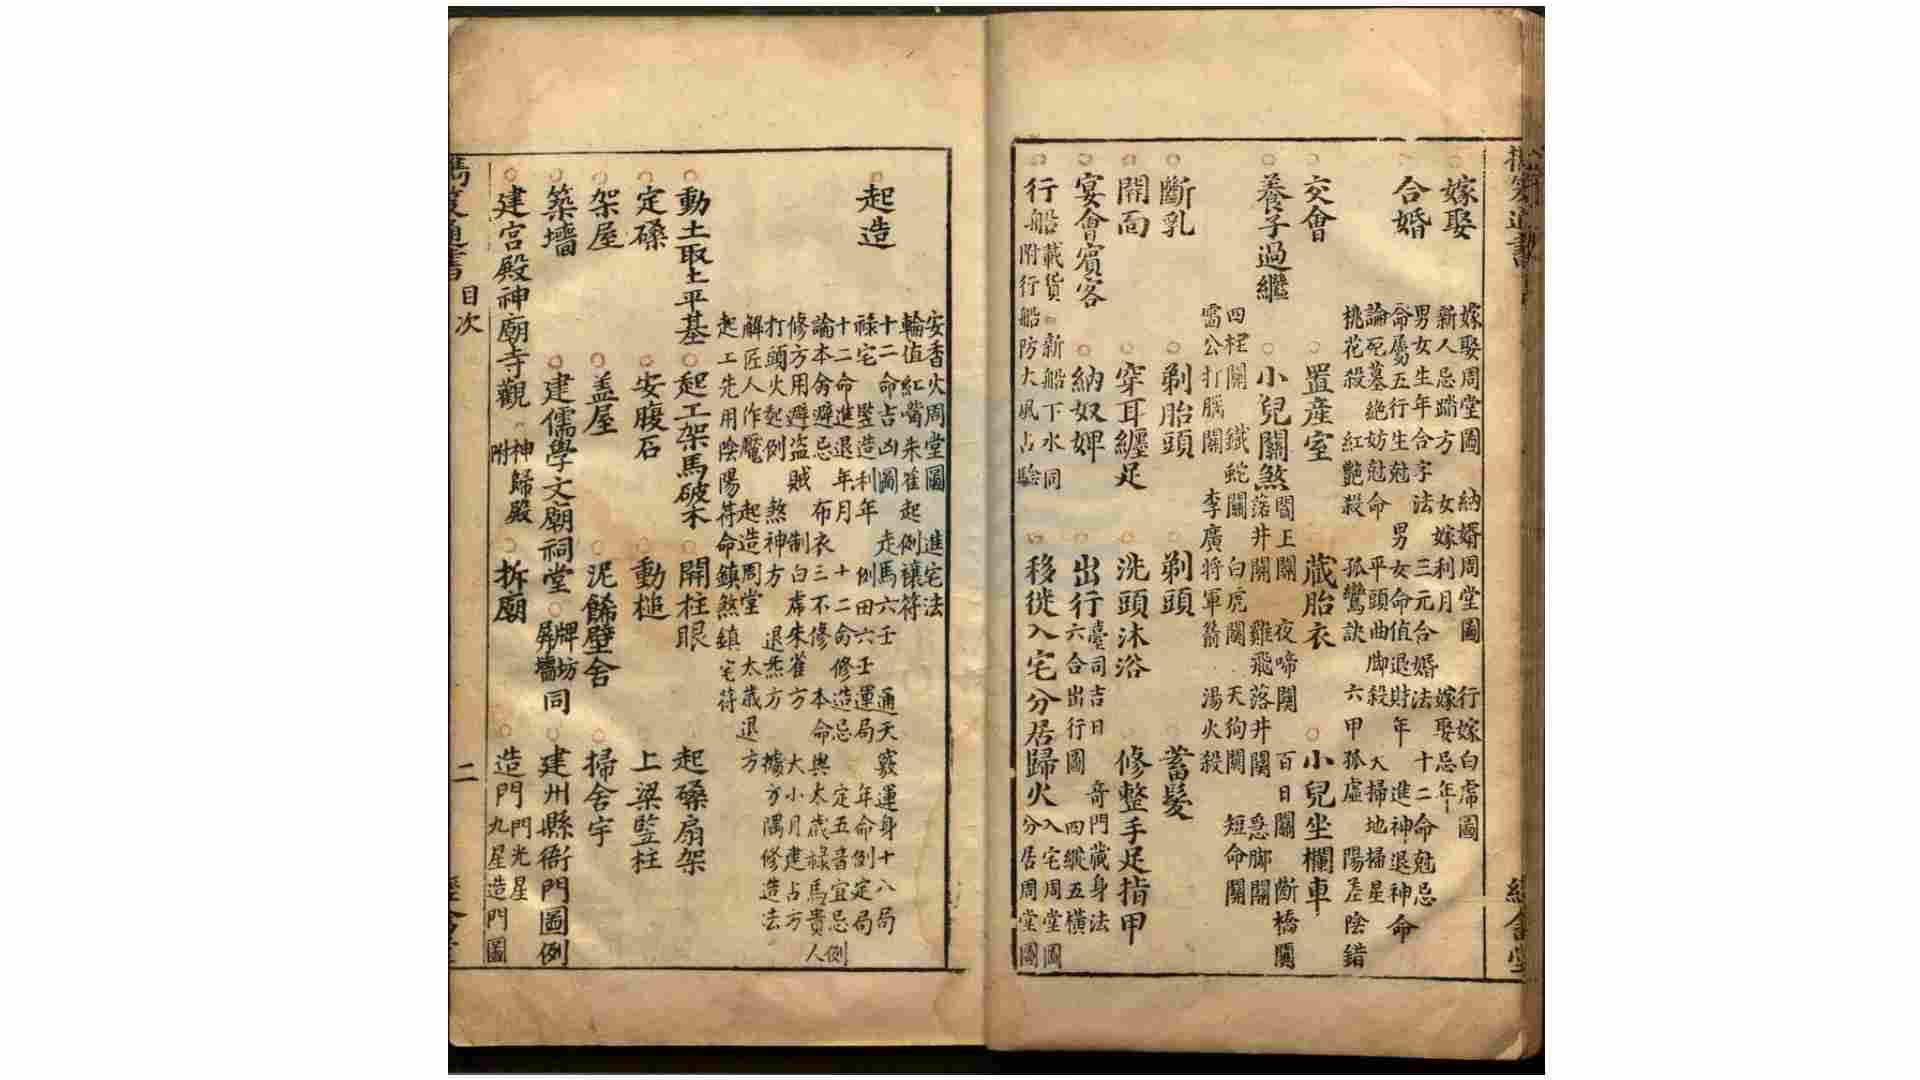 嫁娶
嫁娶周堂圖 納婿周堂圖 行嫁白虎圖
新人忌踏方 女嫁利月 嫁娶忌年
合婚
男女生年合字法 三元合婚法 十二命尅忌
命屬五行生尅 男女命值退財年 進神退神命
論死墓絶妨尅命 平頭曲脚殺 天掃地掃星
桃花殺 紅艶殺 孤鸞訣 六甲孤虛 陽差陰錯
交會 置産室 蔵胎衣 小兒坐欄車
養子過繼 小兒關煞
閻王關 夜啼關 百日關 斷橋關
落井關 雞飛落井關 急脚關
四柱關 鐵蛇關 白虎關 天狗關 短命關
雷公打腦關 李廣將軍箭 湯火殺
斷乳 剃胎頭 剃頭 蓄髮
開面 穿耳纏足 洗頭沐浴 修整手足指甲
宴會賓客 納奴婢 出行
臺司吉日 奇門蔵身法
六合出行圖 四縱五橫
行船載貨 新船下水同
附行船防大風占驗
移徙入宅分居歸火
入宅周堂圖
分居周堂圖
起造
安香火周堂圖 進宅法
輪值紅嘴朱雀起例禳符
十二命吉凶圖 走馬六壬 通天竅運身十八局
祿宅 竪造利年 例田六壬運局 年命例定局
十二命進退年月 十二命修造忌 定五音宜忌例
論本命避忌 布衣三不修 本命與太歲祿馬貴人
修方用避盗賊 制白虎朱雀方 大小月建占方
打頭火起例 煞神方 退炁方 據方隅修造法
解匠人作魘 起造周堂 太歲退方
起工先用陰陽符命鎮煞鎮宅符
動土取土平基 起工架馬破木 開柱眼 起磉扇架
定磉 安腹石 動槌 上梁竪柱
架屋 盖屋 泥餙壁舍 掃舍宇
築墻 建儒學文廟祠堂 牌坊屏墻同 建州縣衙門圖例
建宮殿神廟寺觀 神歸殿附 拆廟 造門
門光星
九星造門圖
目次
二